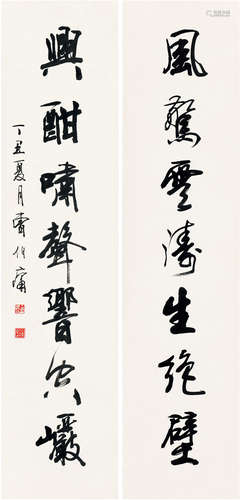 風驚雲濤生絶壁
興酣嘯聲響空巖
丁丑夏月曹伯庸